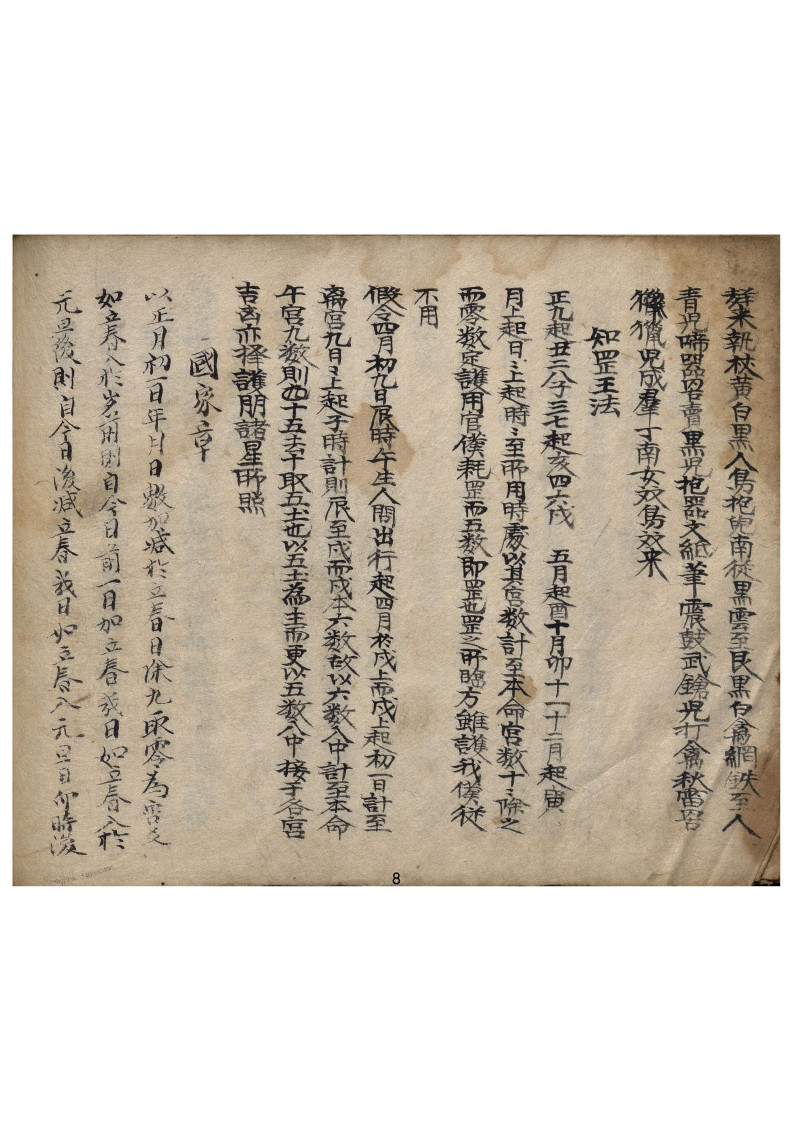 來執杖黃白黑入鳥抱卵南從黑雲至艮黑白禽網鉄至人
青児啼哭器賣黑児抱器文紙筆震鼓武鎗児打禽秋雷
獵児成羣丁南女双鳥双来
知罡王法
正九起丑二八子三七起亥四六戌 五月起酉十月卯十一十二月起寅
月上起日〻上起時〻至所用時處以其宮数計至本命宮数十〻除之
而零数定護用官僕耗罡而五数即罡也罡之所臨方雖護我僕從
不用
假令四月初九日辰時午生人問出行起四月於戌上而戌上起初一日計至
离宮九日〻上起子時計則辰至戌而戌本六数故以六数入中計至本命
午宮九数則四十五去十取五去也以五去為主而更以五数入中接于各宮
吉凶亦擇護朋諸星所照
國家章
以正月初一日年月日數加減於立春日除九取零為宮支
如立春入於岁前則自今日前一日加立春我日如立春入於
元旦後則自今日後減立春我日如立春入元旦日卯時後
8